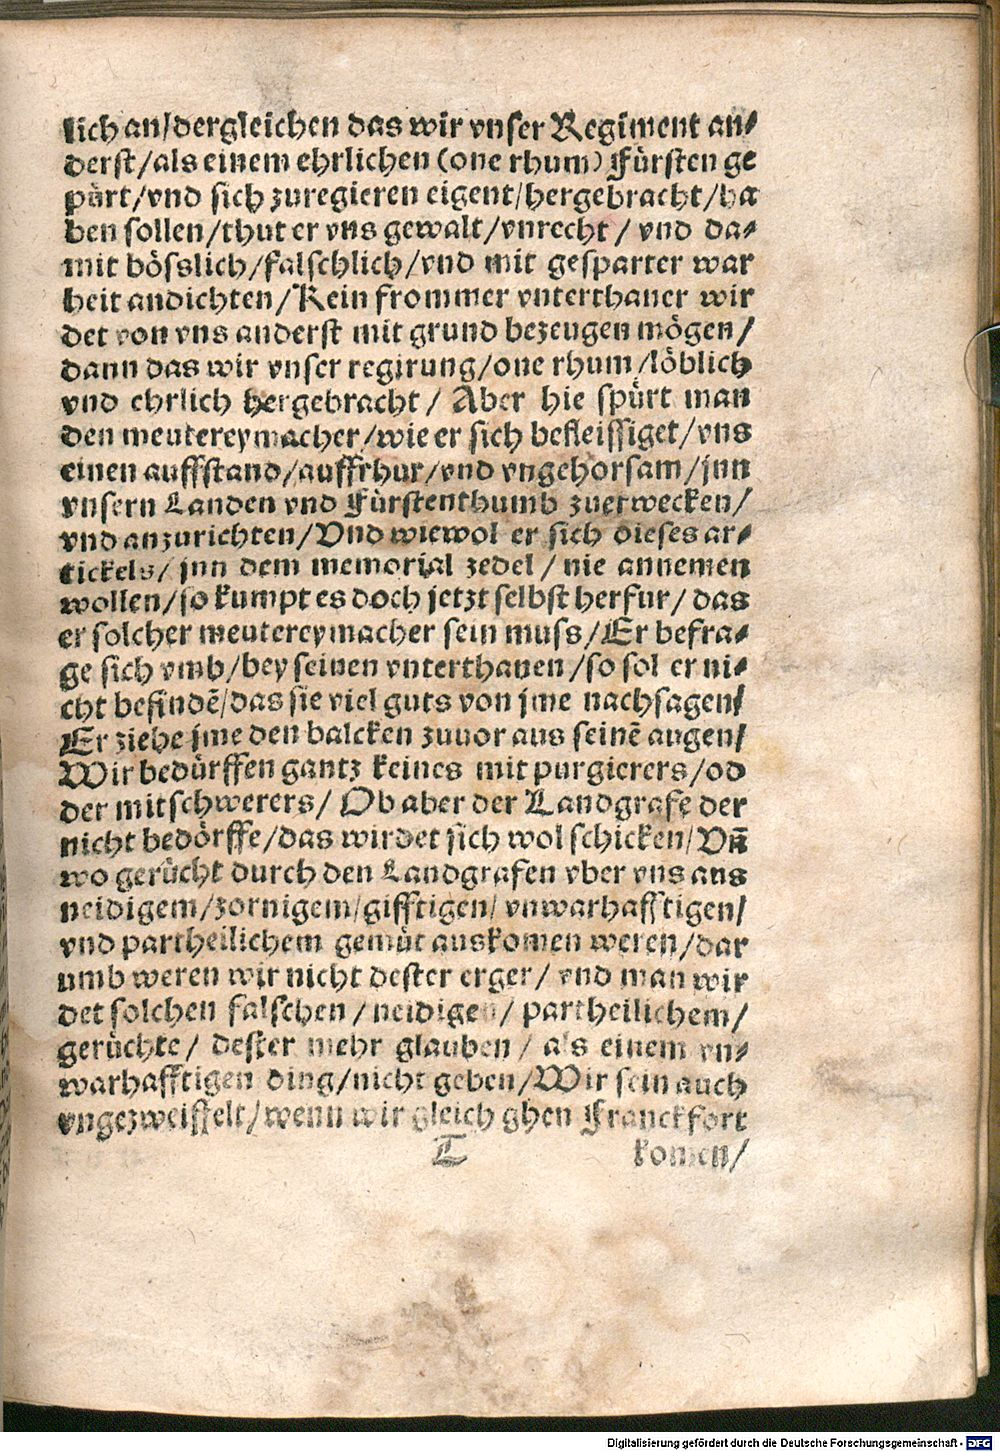 lich an/dergleichen das wir vnser Regiment an⸗
derst/als einem ehrlichen (one rhum) Fürsten ge
pürt/vnd sich zuregieren eigent/hergebracht/ha
ben sollen/thut er vns gewalt/vnrecht/ vnd da⸗
mit bösslich/falschlich/vnd mit gesparter war
heit andichten/Kein frommer vnterthaner wir
det von vns anderst mit grund bezeugen mögen/
dann das wir vnser regirung/one rhum/löblich
vnd ehrlich hergebracht/ Aber hie spürt man
den meutereymacher/wie er sich befleissiget/vns
einen auffstand/auffrhur/vnd vngehorsam/jnn
vnsern Landen vnd Fürstenthumb zuerwecken/
vnd anzurichten/Vnd wiewol er sich dieses ar⸗
tickels/ jnn dem memorial zedel/ nie annemen
wollen/so kumpt es doch jetzt selbst herfur/ das
er solcher meutereymacher sein muss/Er befra⸗
ge sich vmb/bey seinen vnterthanen/so sol er ni⸗
cht befindẽ/das sie viel guts von jme nachsagen/
Er ziehe jme den balcken zuuor aus seinẽ augen/
Wir bedürffen gantz keines mit purgierers/od
der mitschwerers/ Ob aber der Landgrafe der
nicht bedörffe/das wirdet sich wol schicken/Vñ
wo gerücht durch den Landgrafen vber vns aus
neidigem/zornigem/gifftigen/ vnwarhafftigen/
vnd partheilichem gemüt auskomen weren/dar
umb weren wir nicht dester erger/ vnd man wir
det solchen falschen/neidigen/ partheilichem/
gerüchte/ dester mehr glauben/ als einem vn⸗
warhafftigen ding/nicht geben/Wir sein auch
vngezweiffelt/wenn wir gleich ghen Franckfort
T komen/
Digitalisierung gefördert durch die Deutsche Forschungsgemeinschaft - DFG